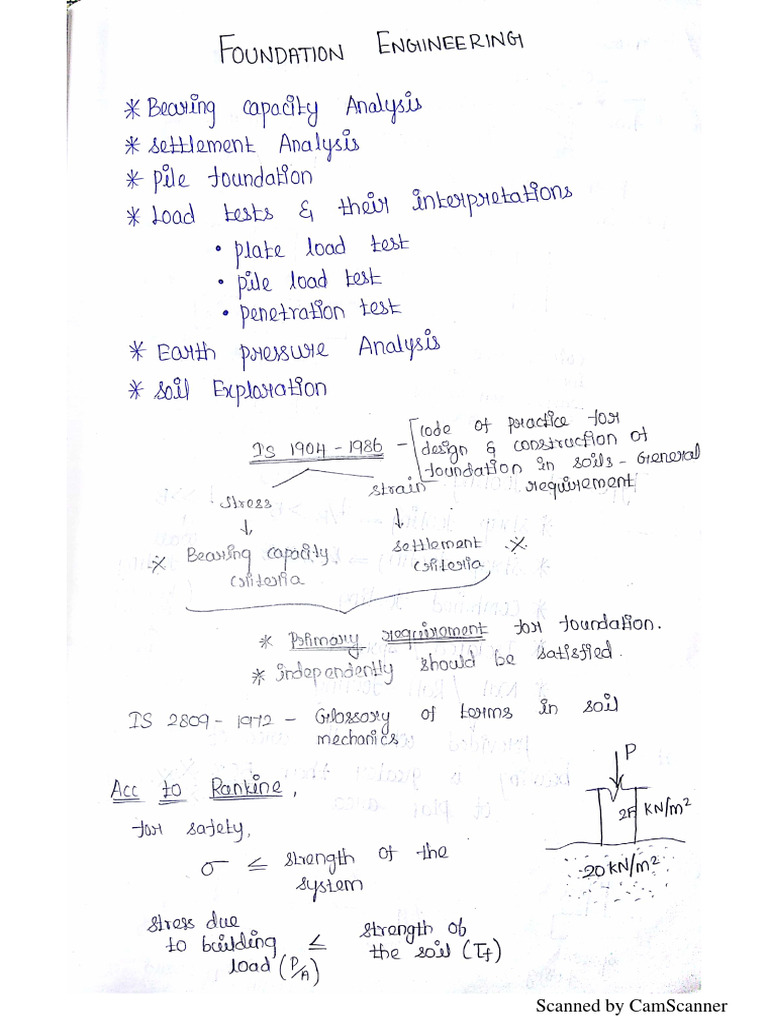 FOUNDATION ENGINEERING
* Bearing capacity Analysis
* settlement Analysis
* pile foundation
* Load tests & their interpretations
• plate load test
• pile load test
• penetration test
* Earth pressure Analysis
* soil Exploration
IS 1904 - 1986 - [code of practice for
design & construction of
foundation in soils - General
requirement
stress strain
↓ ↓
* Bearing capacity criteria
settlement criteria *
* Primary requirement for foundation.
* independently should be satisfied.
IS 2809 - 1972 - Glossory of terms in soil
mechanics
Acc to Rankine,
for safety,
σ ≤ strength of the
system
stress due
to building
load (P/A)
≤
strength of
the soil (τf)
P
KN/m²
20 KN/m²
Scanned by CamScanner